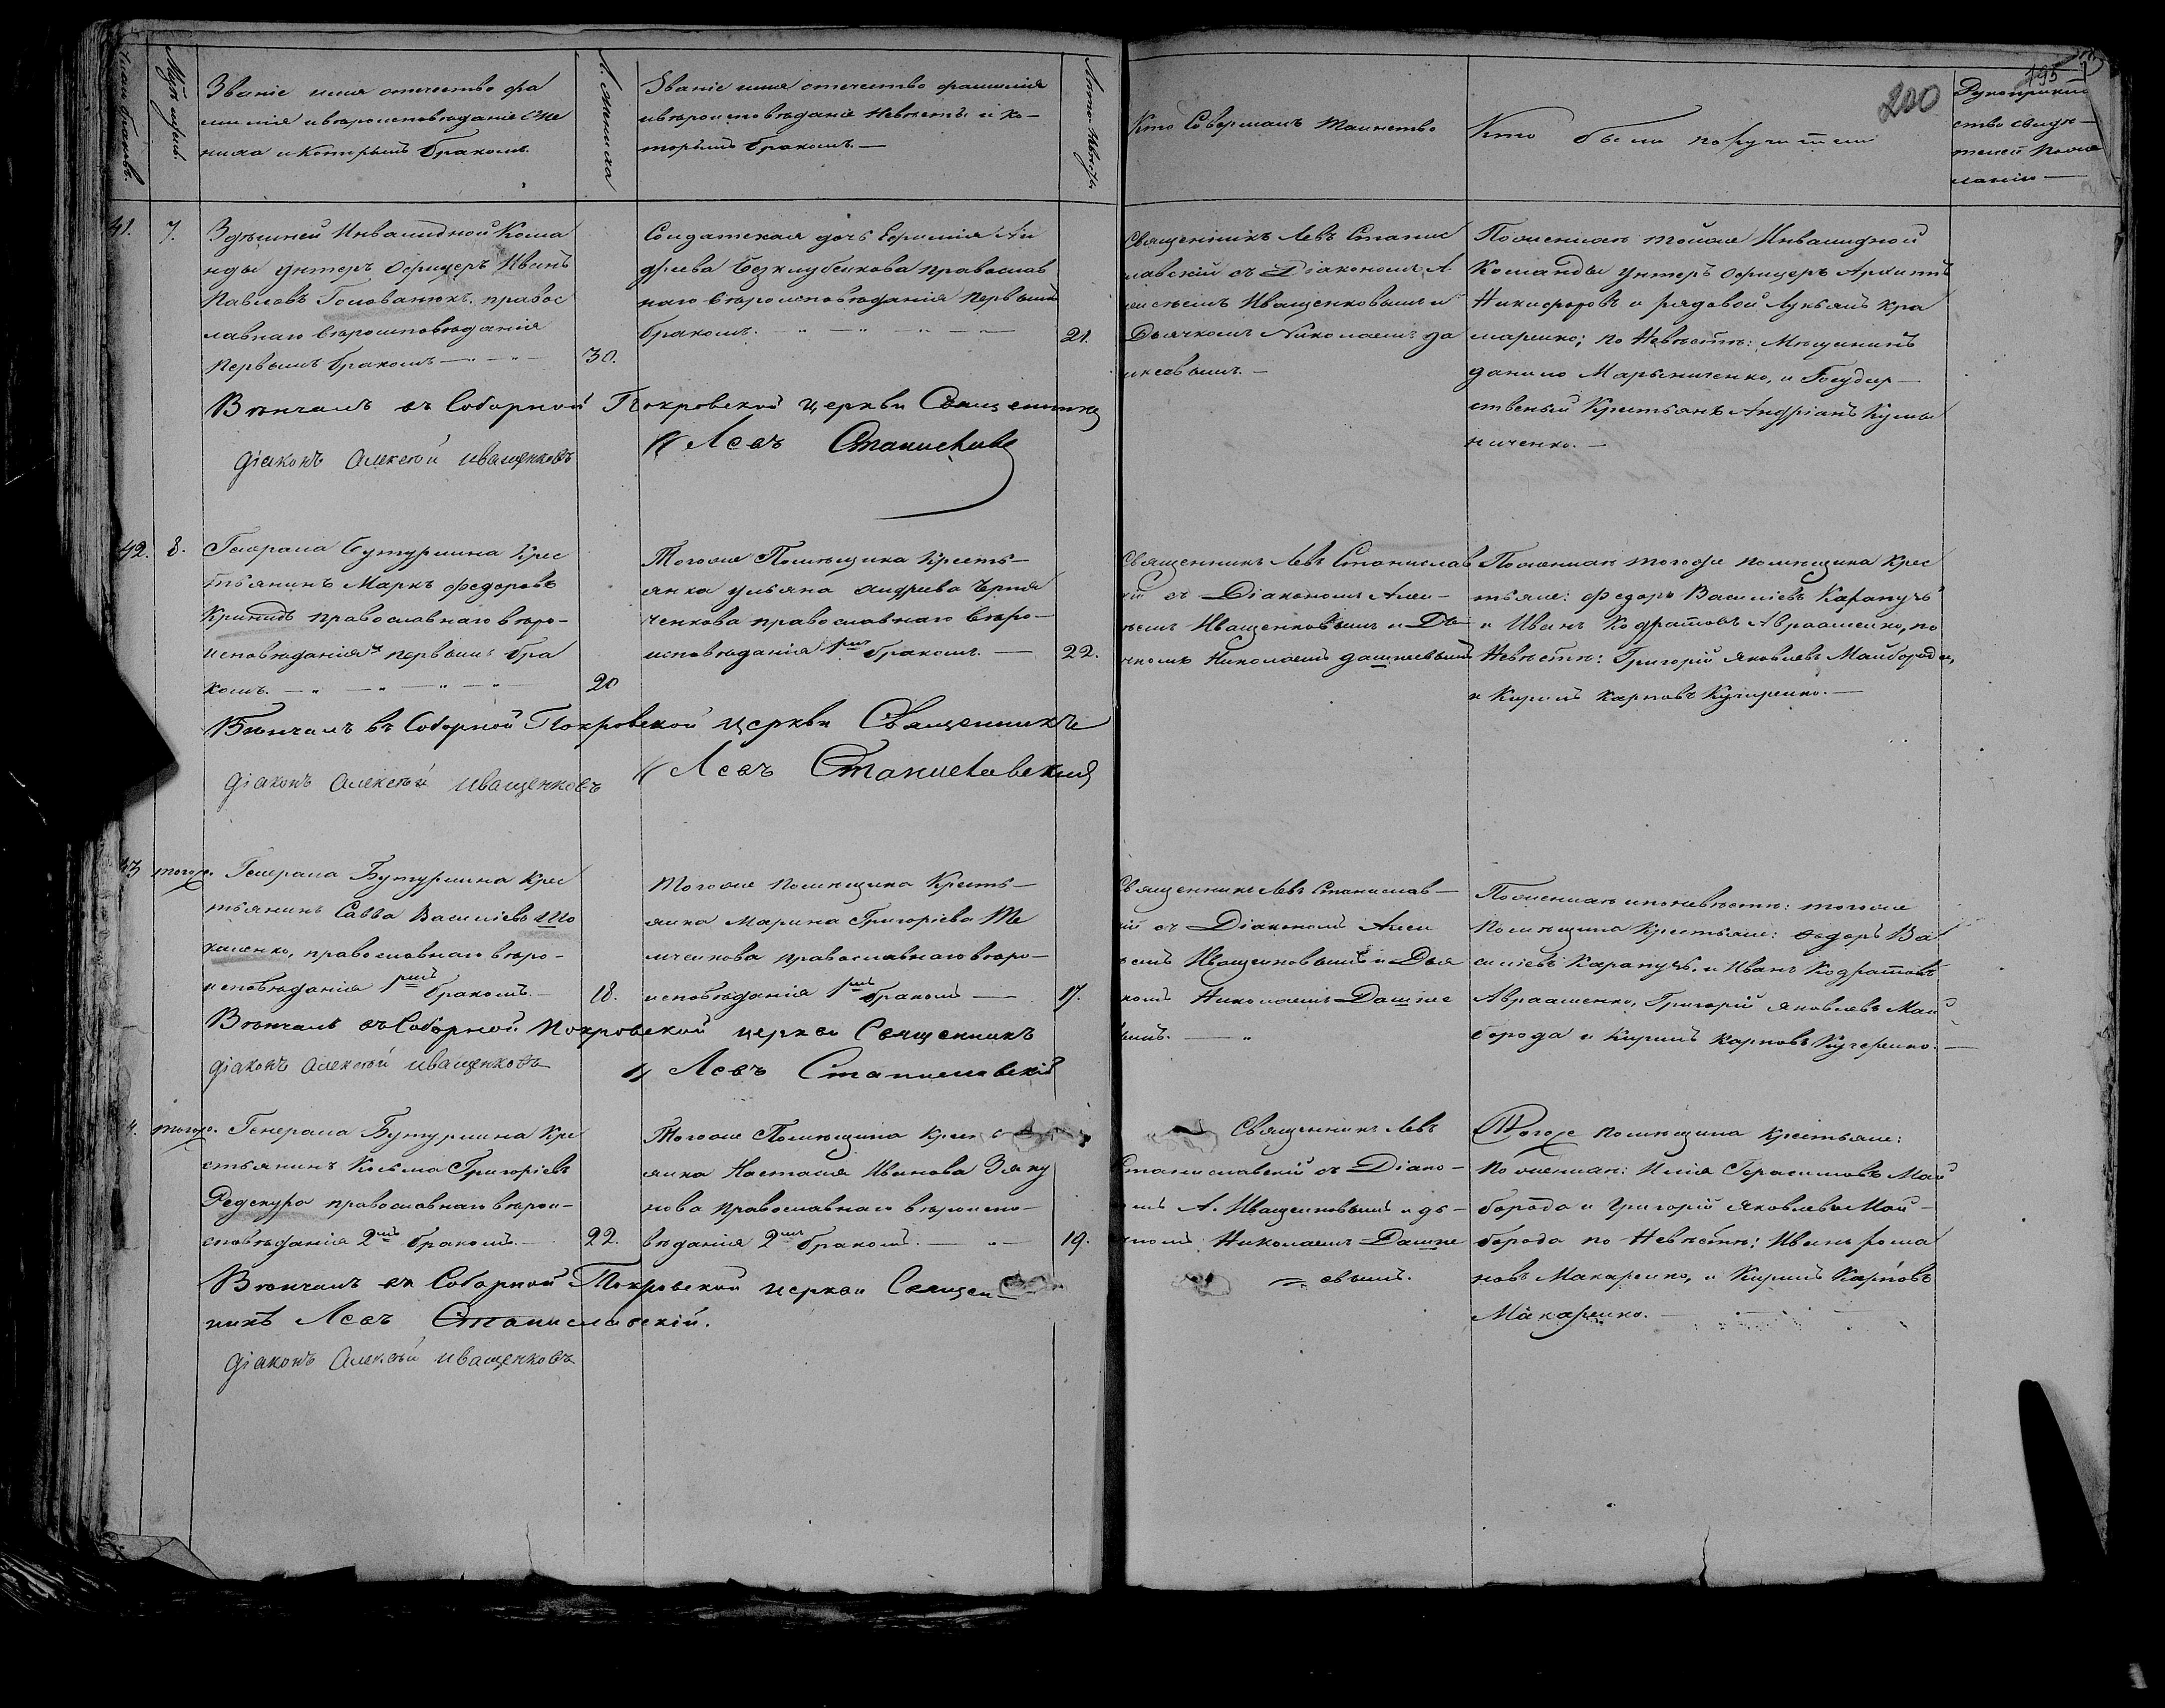 195
200
Число браковъ.
Мѣсяцъ.
Званіе имя отечество фа
милія и вѣроисповѣданіе Же
ниха и Которымъ бракомъ.
Л. Жениха
Званіе имя отечество фамилія
и вѣроисповѣданіе Невѣсты и ко-
торымъ бракомъ. —
Лѣта Невѣсты
Кто Совершалъ Таинство
Кто были поручители
Рукоприклад
ство свидѣ-
телей по же
ланію —
41.
7.
Здѣшней Инвалидной Кома
нды унтеръ Офицеръ Иванъ
Павловъ Голованюкъ, правос
лавнаго вѣроисповѣданія
первымъ бракомъ —
30.
Солдатская дочь Евфимія Ан
дреева Безклубенкова православ
наго вѣроисповѣданія первымъ
бракомъ.
21.
Священникъ Левъ Станис
лавскій съ Діакономъ А
лексѣемъ Иващенковымъ и
Дьячкомъ Николаемъ Да
шкеевымъ. —
По женихѣ тойже Инвалидной
Команды унтеръ Офицеръ Архипъ
Никифоровъ и рядовой Лукьянъ Кра
маренко; по Невѣстѣ: Мѣщанинъ
Данило Марьниченко, и Государ-
ственый Крестьянъ Андріанъ Кулы
ниченко. —
Вѣнчалъ въ Соборной Покровской церкви Священникъ
Левъ Станиславс
Діаконъ Алексѣй Иващенковъ
42.
8.
Генерала Бутурлина Крес
тьянинъ Маркъ Федоровъ
Кринидъ православнаго вѣро-
исповѣданія первымъ бра
комъ.
20
Тогоже Помѣщика Кресть-
янка Ульяна Андреева Черня
ченкова православнаго вѣро-
исповѣданія 1рмъ бракомъ. —
22.
Священникъ Левъ Станислав
ій съ Діакономъ Алек-
сѣемъ Иващенковымъ и Дь
ячкомъ Николаемъ Дашкеевымъ
По женихѣ тогоже помѣщика Крес
тьяне: Федоръ Василіевъ Карапузъ
и Иванъ Кодратовъ Авраменко, по
Невѣстѣ: Григорій Яковлевъ Майборода,
и Кирилъ Карповъ Кучеренко. —
Вѣнчалъ въ Соборной Покровской церкви Священникъ
Левъ Станиславскій
Діаконъ Алексѣй Иващенковъ
43
тогоже.
Генерала Бутурлина Крес
тьянинъ Савва Василіевъ Мо
каленко, православнаго вѣро-
исповѣданія 1рмъ бракомъ. —
18.
Тогоже помѣщика Кресть-
янка Марина Григоріева Те
личенкова православнаго вѣро-
исповѣданія 1рмъ бракомъ —
17.
Священникъ Левъ Станислав-
ій съ Діакономъ Алек
сѣемъ Иващенковымъ и Дья
комъ Николаемъ Дашке
вымъ. —
По женихѣ и по невѣстѣ: тогоже
помѣщика Крестьяне: Федоръ Ва
силіевъ Карапузъ, и Иванъ Кодратовъ
Авраменко, Григорій Яковлевъ Май
борода и Кирилъ Карповъ Кучеренко. —
Вѣнчалъ въ Соборной Покровской церкви Священникъ
Левъ Станиславскій
Діаконъ Алексѣй Иващенковъ
4.
тогоже.
Генерала Бутурлина Кре
стьянинъ Косьма Григоріевъ
Редскура православнаго вѣрои-
сповѣданія 2мъ бракомъ. —
22.
Тогоже Помѣщика Крес
янка Настасія Иванова Зяку
нова православнаго вѣроиспо-
вѣданія 2мъ бракомъ. —
19.
Священникъ Левъ
Станиславскій съ Діако-
омъ А. Иващенковымъ и дь-
комъ Николаемъ Дашке
евымъ.
Тогоже помѣщика крестьяне:
По женихѣ: Илія Герасимовъ Май
борода и Григорій Яковлевъ Май-
борода по Невѣстѣ: Иванъ Рома
новъ Макаренко, и Кирилъ Карповъ
Макаренко. —
Вѣнчалъ въ Соборной Покровской церкви Священ
никъ Левъ Станиславскій.
Діаконъ Алексѣй Иващенковъ